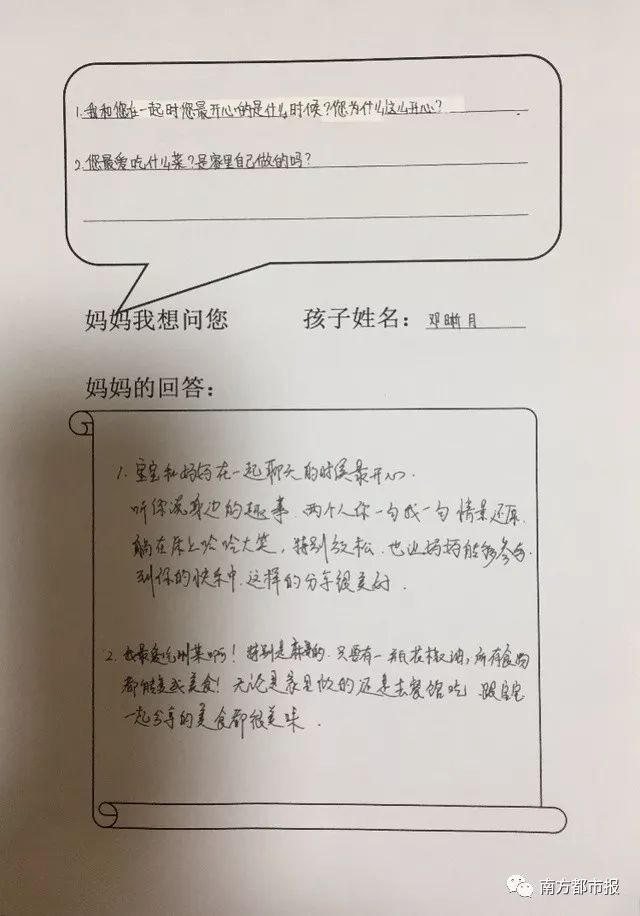 1.我和您在一起时您最开心的是什么时候?您为什么这么开心?
2.您最爱吃什么菜?是家里自己做的吗?
妈妈我想问您 孩子姓名：邓晰月
妈妈的回答：
1. 宝宝和妈妈在一起聊天的时候最开心.
听你说身边的趣事.两个人你一句我一句情景还原.
躺在床上哈哈大笑，特别放松.也让妈妈能够参与
到你的快乐中.这样的分享很美好.
2. 我最爱吃川菜啊！特别是麻辣的.只要有一瓶花椒油，所有食物
都能变成美食！无论是家里做的还是去餐馆吃.跟宝宝
一起分享的美食都很美味.
南方都市报